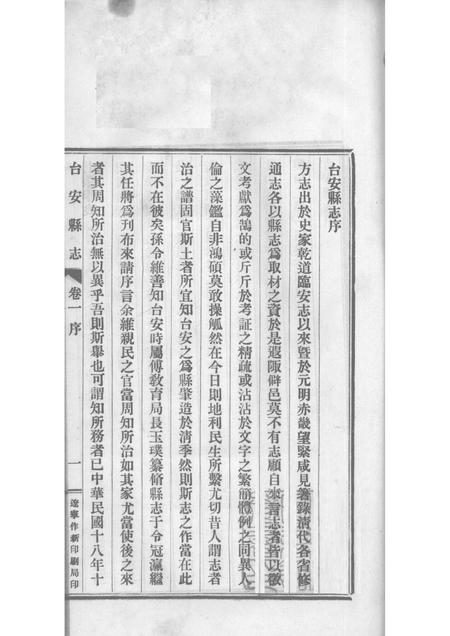 台安縣志序
方志出於史家乾道臨安志以來暨於元明赤畿望緊咸見箸錄清代各省修
通志各以縣志爲取材之資於是遐陬僻邑莫不有志顧自來言志者皆以徵
文考獻爲鵠的或斤斤於考証之精疏或沾沾於文字之繁簡體例之同異人
倫之藻鑑自非鴻碩莫敢操觚然在今日則地利民生所繫尤切昔人謂志者
治之譜固官斯土者所宜知台安之爲縣肇造於清季然則斯志之作當在此
而不在彼矣孫令維善知台安時屬傅敎育局長玉璞纂脩縣志于令冠瀛繼
其任將爲刋布來請序言余維親民之官當周知所治如其家尤當使後之來
者其周知所治無以異乎吾則斯舉也可謂知所務者已中華民國十八年十
台安縣志 卷一 序 一
遼寧作新印刷局印